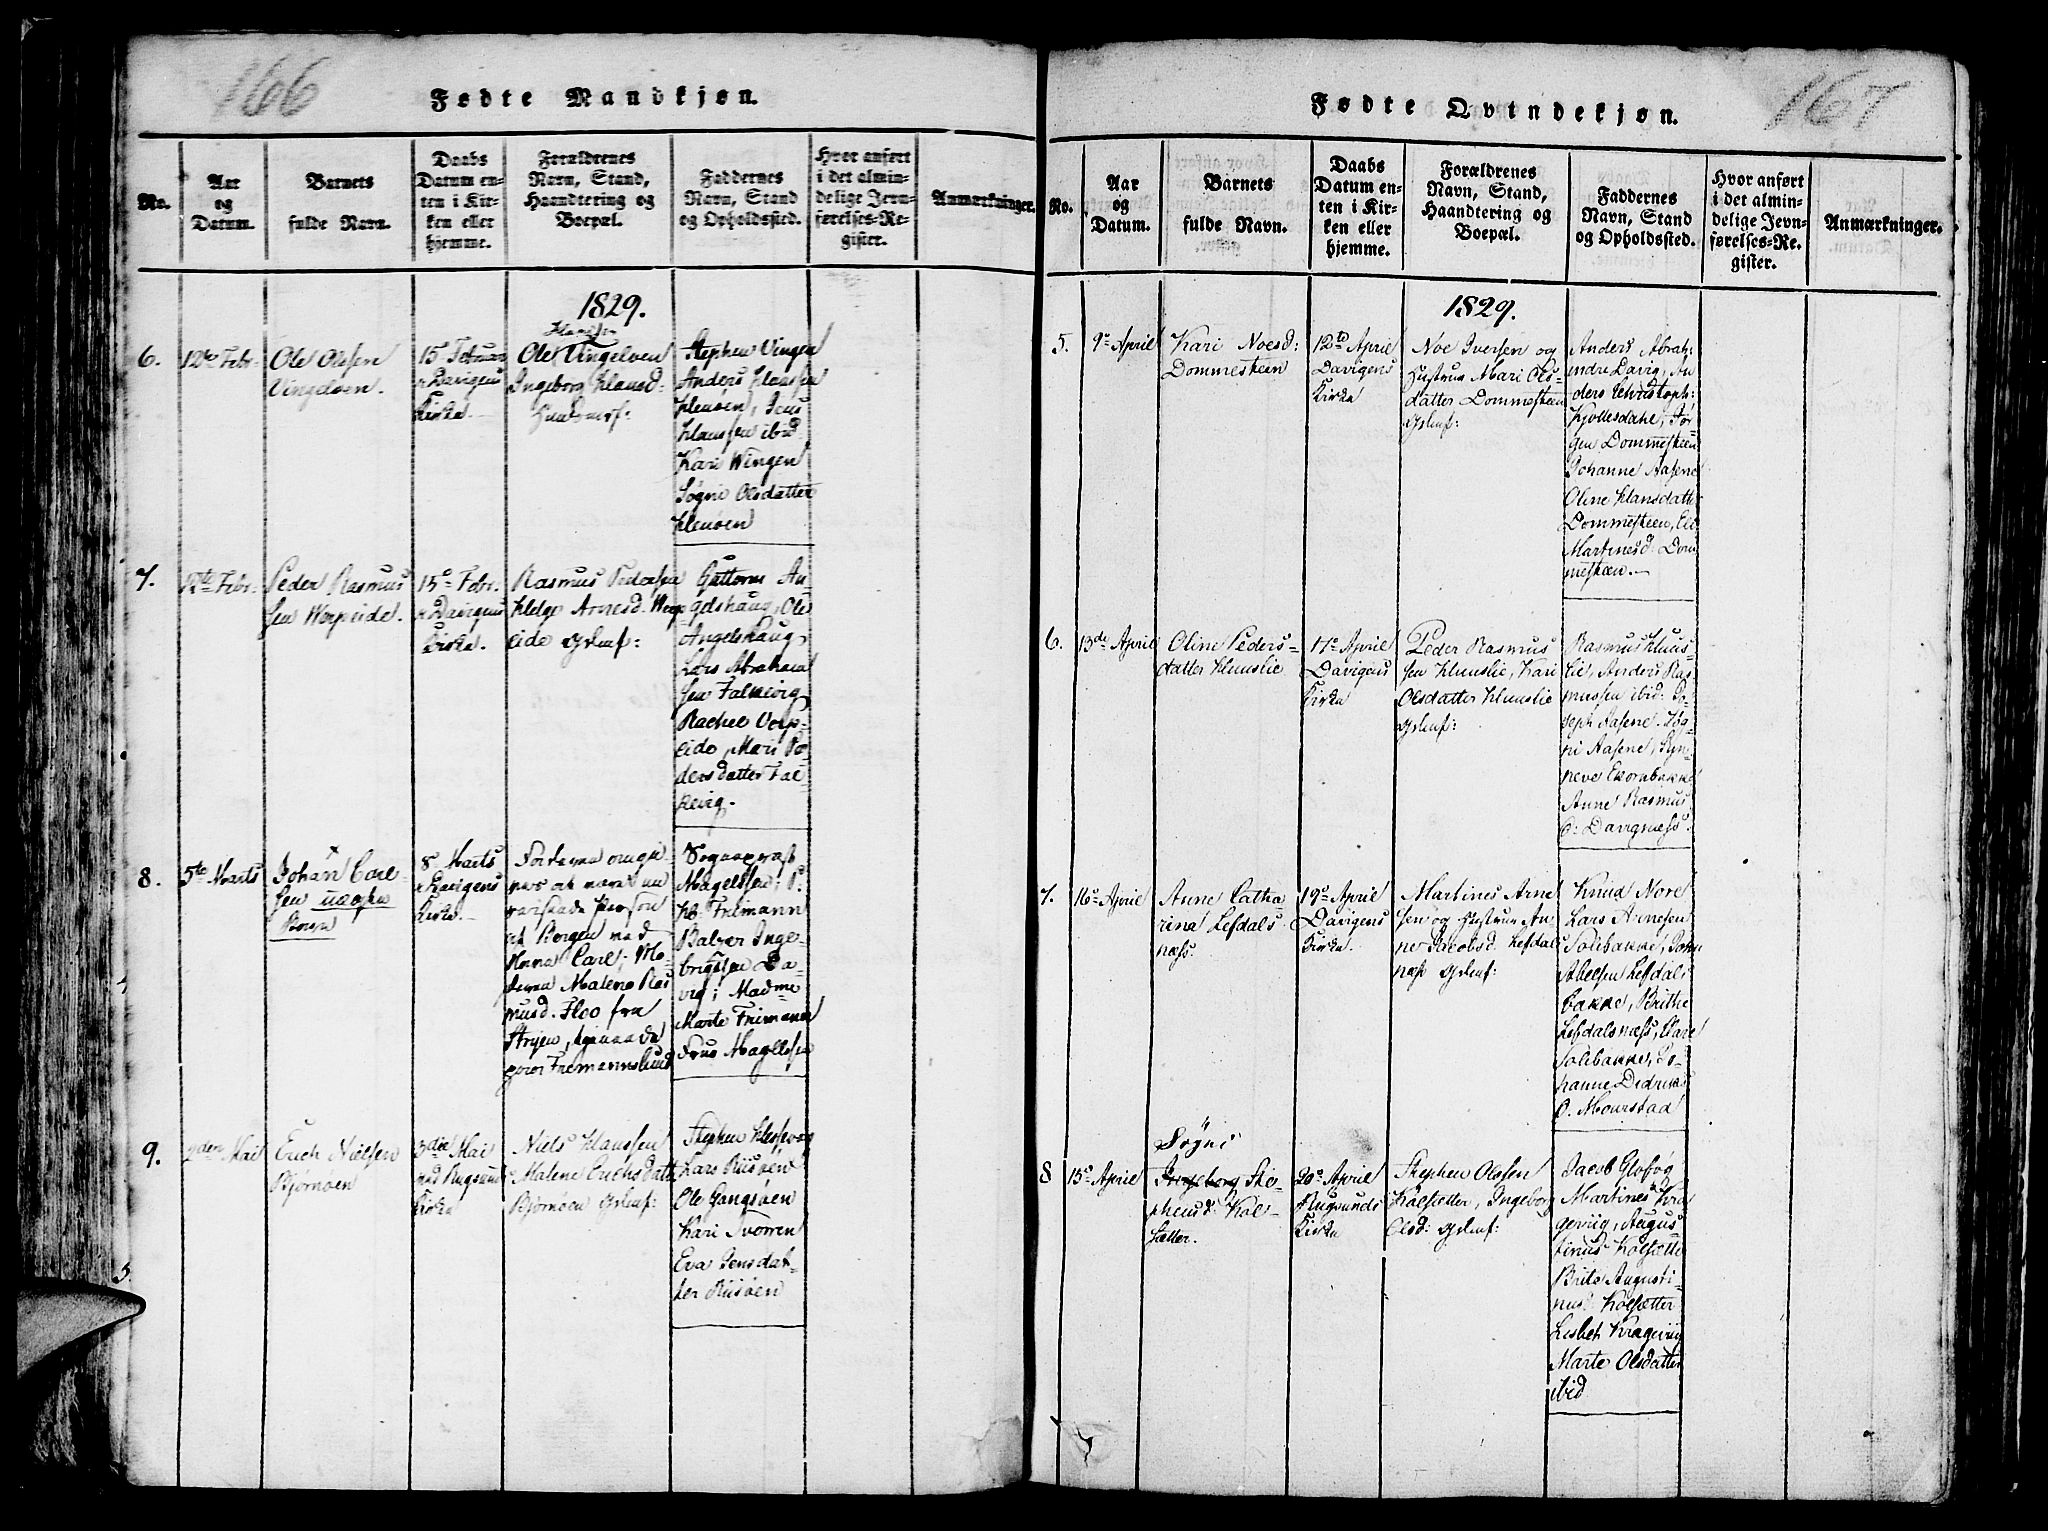 166
Fødte Mandkjøn.
No.
Aar
og
Datum.
Barnets
fulde Navn.
Daabs
Datum en-
ten i Kir-
ken eller
hjemme.
Forældrenes
Navn, Stand,
Haandtering og
Boepæl.
Faddernes
Navn, Stand
og Opholdssted.
Hvor anført
i det almin-
delige Jevn-
førelses-Re-
gister.
Anmærkninger.
1829.
6.
12te Febr.
Ole Olsen
Vingelven.
15 Februar
i Davigens
Kirke.
Ole Vingelven
Ingeborg Hansd:
Stephen Vingen
Anders Hanssen
Hensøen, Jens
Hanssen ibid
Kari Wingen
Søgni Olsdatter
Hensøen
7.
12te Febr.
Peder Rasmus
sen Worpeide.
15de Febr.
i Davigens
Kirke.
Rasmus Pedersen
Helge Arnesd. Worp
eide Giftf:
Guttorm An
gelshaug, Ole
Angelshaug,
Lars Abraham
sen Falkevig
Rachel Vorp-
eide, Mari Pe-
dersdatter Fal-
kevig.
8.
5te Marts
Johan Carl-
sen uægte
Barn
8 Marts
i Davigens
Kirke.
af Bergen ved
Navn Carl; Mo-
deren Malene Ras
musd. Floo fra
Stryen, tjenende
paa Friemannslund
Sognepræst
Magelssen; P.
H. Friemann
Balzer Inge-
brigtsen Da-
vig; Madme
Marte Friemann
Frue Magelssen
9.
2den Mai
Erich Nielsen
Bjørnøen
3die Mai
ved Rugsund
Kirke
Niels Hanssen
Malene Erichsdatt
Bjørnøen Giftf:
Stephen Hessevog
Lars Riisøen
Ole Gangsøen
Kari Tvorren
Eva Jensdat-
ter Riisøen
167
Fødte Qvindekjøn.
No.
Aar
og
Datum.
Barnets
fulde Navn.
Daabs
Datum en-
ten i Kir-
ken eller
hjemme.
Forældrenes
Navn, Stand,
Haandtering og
Boepæl.
Faddernes
Navn, Stand
og Opholdssted.
Hvor anført
i det almin-
delige Jevn-
førelses-Re-
gister.
Anmærkninger.
1829.
5.
9de April
Kari Noesd:
Dommesteen
12te April
Davigens
Kirke
Noe Iversen og
Hustrue Mari Ols-
datter Dommesteen
Giftf:
Anders Abrah:
indre Davig, An
ders Christoph:
Kjøllesdahl, Jør-
gen Dommesteen
Johanne Aasene
Oline Hansdatter
Dommesteen, Eli
Martinesd: Dom
mesteen.
6.
13de April
Oline Peders-
datter Hunslie
17de April
Davigens
Kirke
Peder Rasmus
sen Hunslie, Kari
Olsdatter Hunslie
Giftf:
Rasmus Huns-
lie, Anders Ras
mussen ibid: Jo-
seph Aasene. Søg-
ni Aasene, Syn-
neve Ekornbakke
Anne Rasmus
D: Davignæss.
7.
16de April
Anne Catha-
rina Lefdals-
næss.
19de April
Davigens
Kirke.
Martines Arne
sen og Hustrue An
ne Jacobsd. Lefdals
næss Giftf:
Knud Nore
Lars Arnesen
Solibakke, John
Abelsen Lefdals
bakke, Brithe
Lefdalsnæss, Mari
Solibakke, Jo-
hanne Didrics
D. Mourstad
8
15de April
Søgni
Ingeborg Ste-
phensd: Kol-
sætter.
20de April
Rugsunds
Kirke
Stephen Olssen
Kolsætter, Ingeborg
Olsd: Giftf:
Jacob Glofog
Martines Kra
gevig, Augus
tinus Kolsætter
Brite Augusti-
nus: Kolsætter
Lisbet Kragevig
Marte Olsdatter
ibid